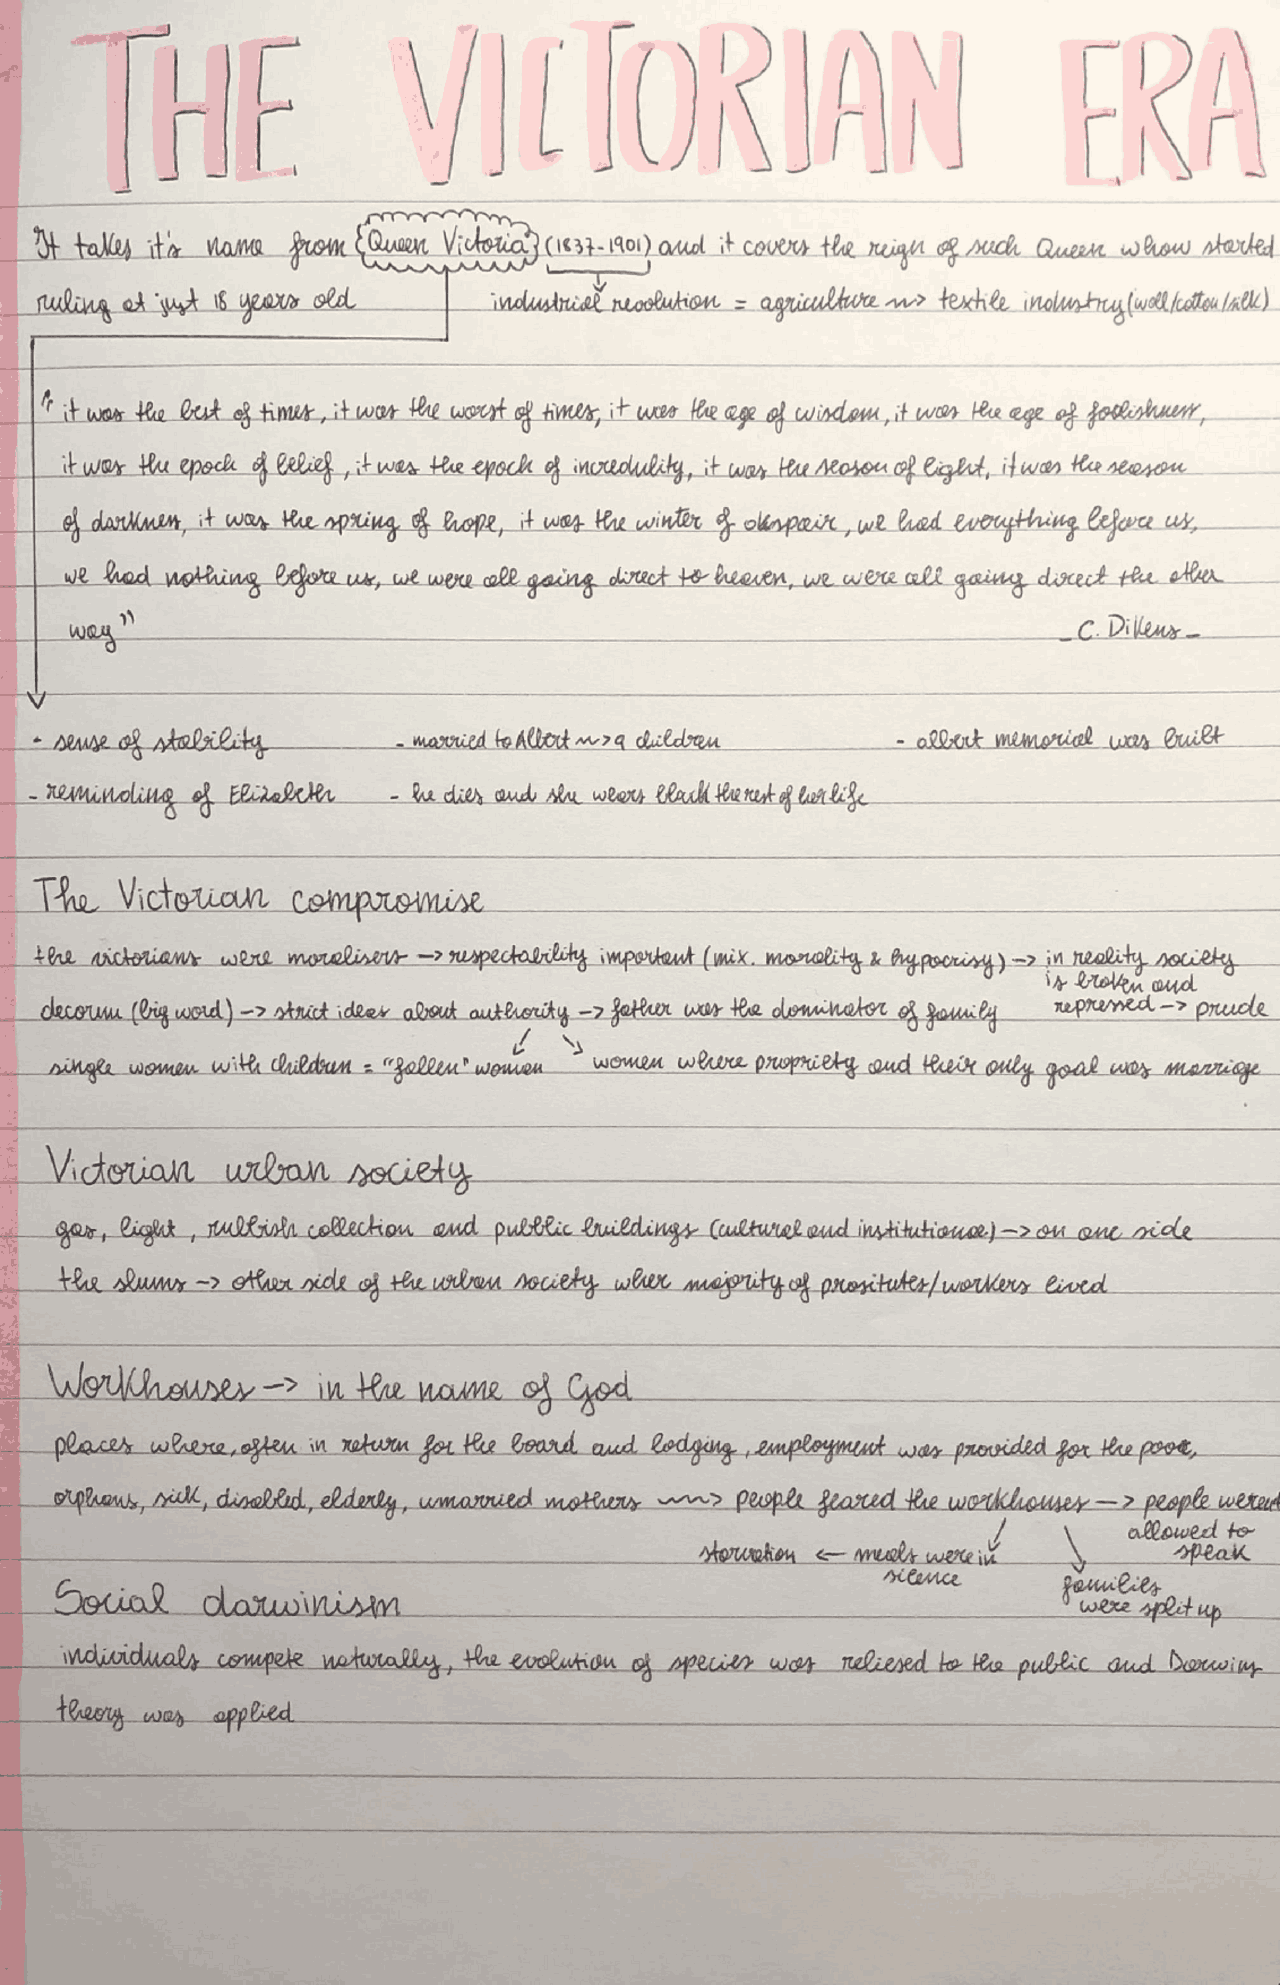 THE VICTORIAN ERA
It takes it's name from {Queen Victoria} (1837-1901) and it covers the reign of such Queen whow started
ruling at just 18 years old
industrial revolution = agriculture ~> textile industry (woll/cotton/silk)
"it was the best of times, it was the worst of times, it was the age of wisdom, it was the age of foolishness,
it was the epoch of belief, it was the epoch of incredulity, it was the season of light, it was the season
of darkness, it was the spring of hope, it was the winter of despair, we had everything before us,
we had nothing before us, we were all going direct to heaven, we were all going direct the other
way"
_ C. Dikens _
- sense of stability
- married to Albert ~> 9 children
- albert memorial was built
- reminding of Elizabeth
- he dies and she wears black the rest of her life
The Victorian compromise
the victorians were moralisers -> respectability important (mix. morality & hypocrisy) -> in reality society
is broken and
repressed -> prude
decorum (big word) -> strict ideas about authority -> father was the dominator of family
single women with children = "fallen" women
women where propriety and their only goal was marriage
Victorian urban society
gas, light, rubbish collection and pubblic buildings (cultural and institutional) -> on one side
the slums -> other side of the urban society wher majority of prositutes/workers lived
Workhouses -> in the name of God
places where, often in return for the board and lodging, employment was provided for the poor,
orphans, sick, disabled, elderly, umarried mothers ~> people feared the workhouses -> people weren't
allowed to
speak
starvation <- meals were in
silence
families
were split up
Social darwinism
individuals compete naturally, the evolution of species was reliesed to the public and Darwins
theory was applied